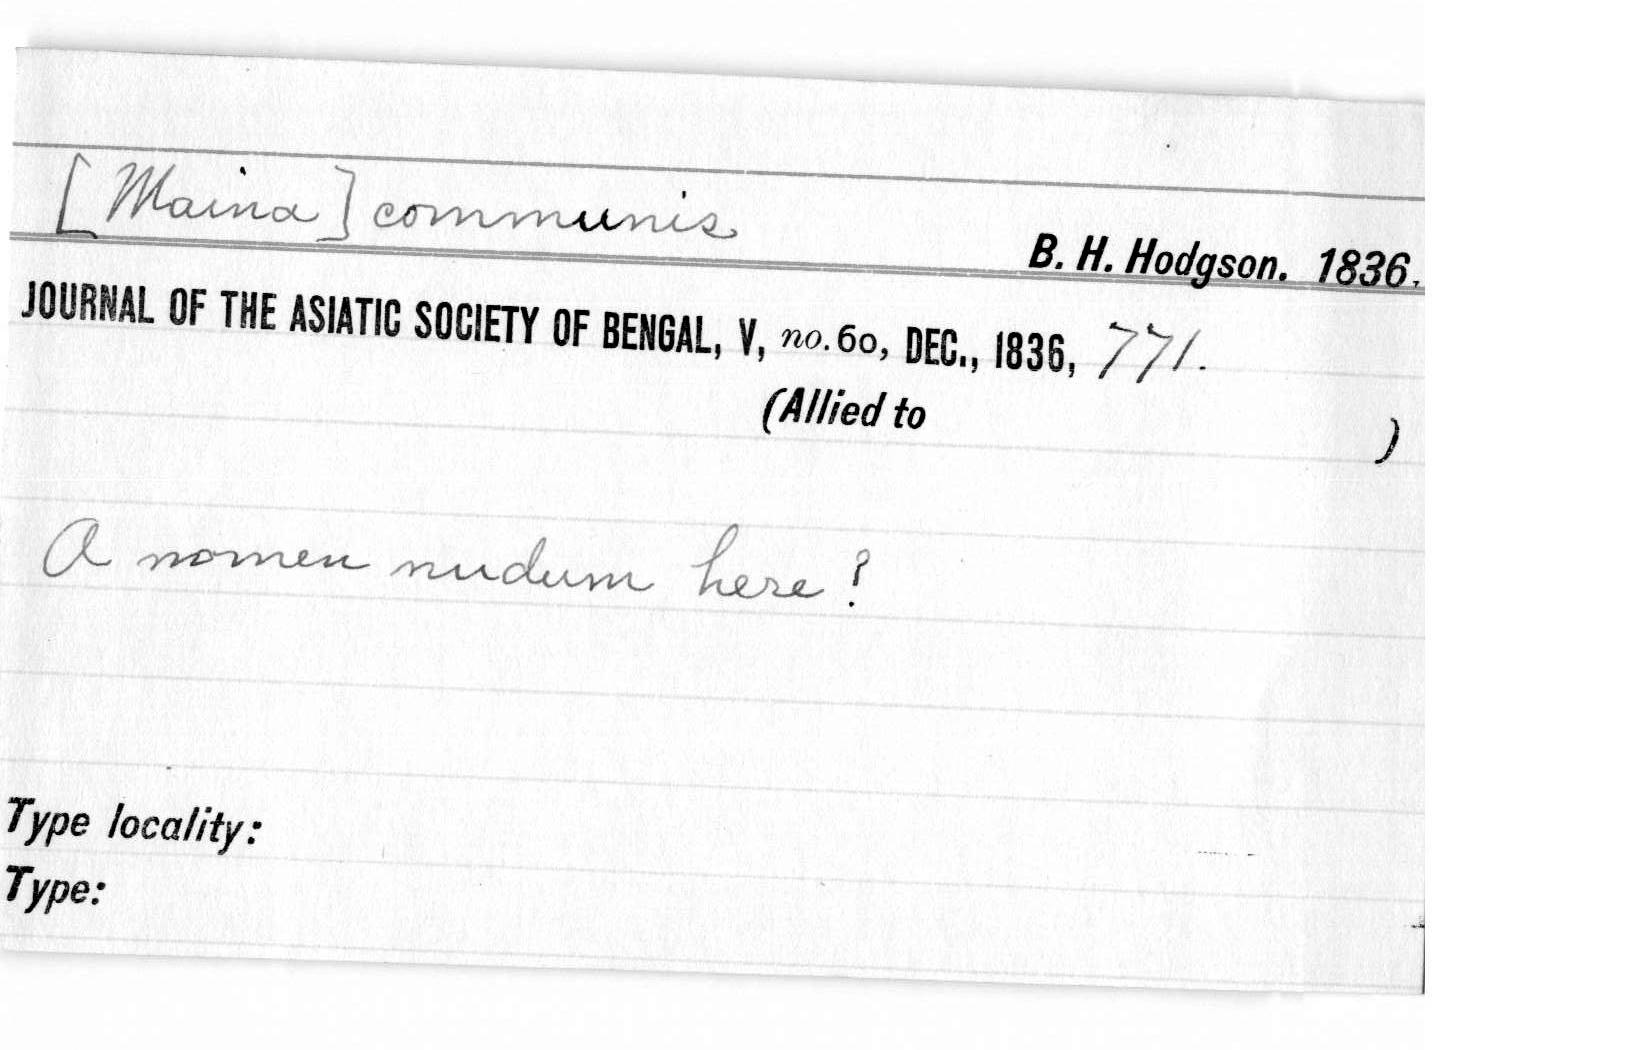 [Maina] communis
B. H. Hodgson. 1836.
JOURNAL OF THE ASIATIC SOCIETY OF BENGAL, V, no. 60, DEC., 1836, 771.
(Allied to )
A nomen nudum here?
Type locality:
Type: